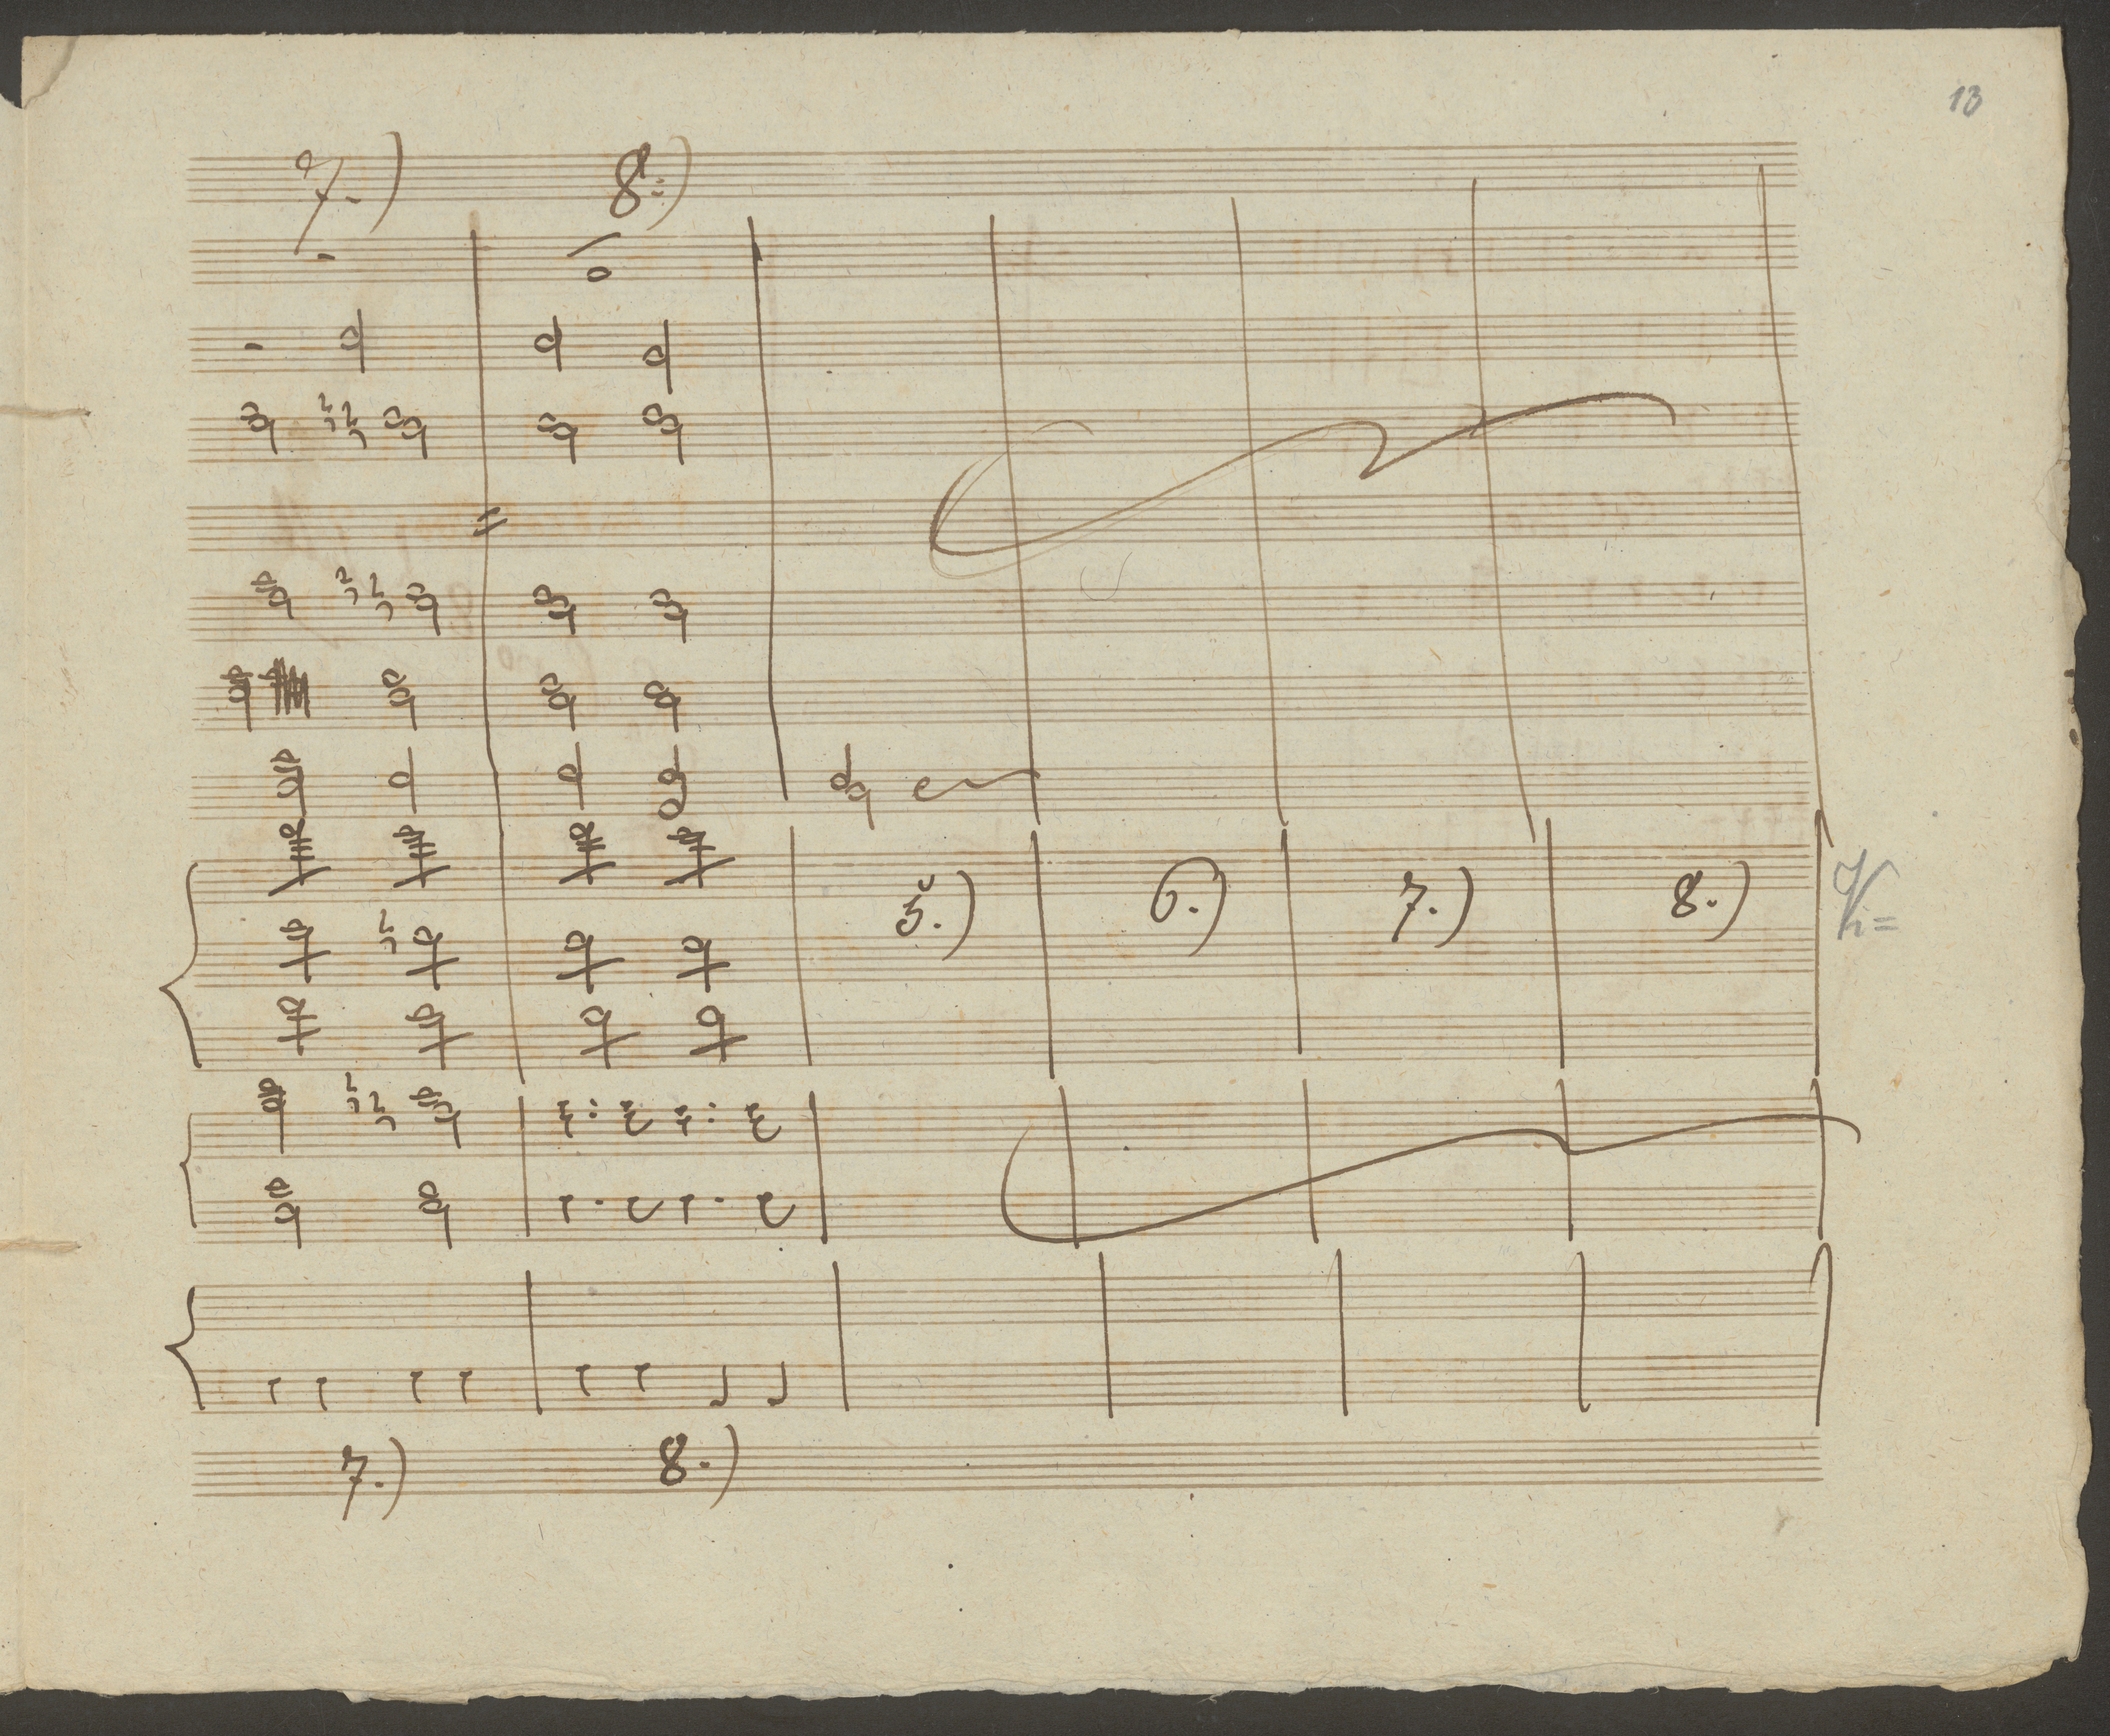 13
7.) 8.)
5.) 6.) 7.) 8.)
7.) 8.)